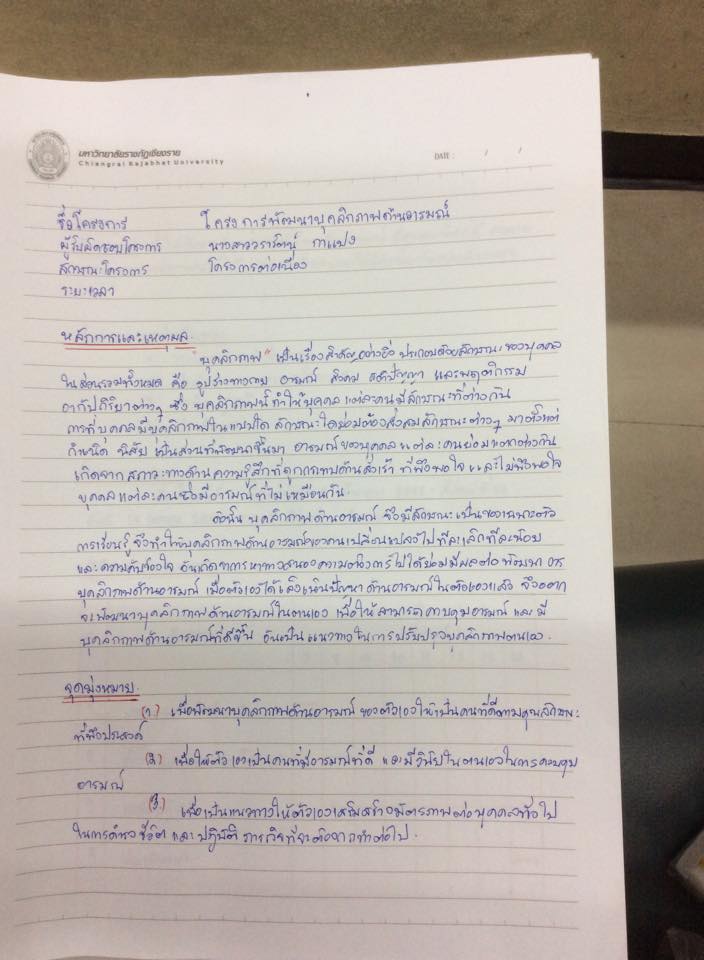 มหาวิทยาลัยราชภัฏเชียงราย
Chiangrai Rajabhat University
DATE : / /
ชื่อโครงการ โครงการพัฒนาบุคลิกภาพด้านอารมณ์
ผู้รับผิดชอบโครงการ นางสาววรารัตน์ กาแปง
ลักษณะโครงการ โครงการต่อเนื่อง
ระยะเวลา
หลักการและเหตุผล
"บุคลิกภาพ" เป็นเรื่องสำคัญอย่างยิ่ง ประกอบด้วยลักษณะของบุคคล
ในส่วนรวมทั้งหมด คือ รูปร่างทางกาย อารมณ์ สังคม สติปัญญา และพฤติกรรม
อากัปกิริยาต่างๆ ซึ่ง บุคลิกภาพนี้ทำให้บุคคลแต่ละคนมีลักษณะที่ต่างกัน
การที่บุคคลมีบุคลิกภาพในแบบใด ลักษณะใดย่อมต้องสั่งสมลักษณะต่างๆ มาตั้งแต่
กำเนิด นิสัย เป็นส่วนที่พัฒนาขึ้นมา อารมณ์ของบุคคลแต่ละคนย่อมแตกต่างกัน
เกิดจากสภาวะทางด้านความรู้สึกที่ถูกกระทบด้านสิ่งเร้า ที่พึงพอใจและไม่พึงพอใจ
บุคคลแต่ละคนจึงมีอารมณ์ที่ไม่เหมือนกัน
ดังนั้น บุคลิกภาพด้านอารมณ์ จึงมีลักษณะเป็นของเฉพาะตัว
การเรียนรู้ จึงทำให้บุคลิกภาพด้านอารมณ์ของคนเปลี่ยนแปลงไปทีละเล็กทีละน้อย
และความคับข้องใจ อันเกิดจากการหาทางสนองความต้องการไม่ได้ย่อมมีผลต่อพัฒนาการ
บุคลิกภาพด้านอารมณ์ เมื่อตัวเองได้เล็งเห็นปัญหาด้านอารมณ์ในตัวเองแล้ว จึงอยาก
จะพัฒนาบุคลิกภาพด้านอารมณ์ในตนเอง เพื่อให้สามารถควบคุมอารมณ์ และมี
บุคลิกภาพด้านอารมณ์ที่ดีขึ้น อันเป็นแนวทางในการปรับปรุงบุคลิกภาพตนเอง
จุดมุ่งหมาย
(1.) เพื่อพัฒนาบุคลิกภาพด้านอารมณ์ ของตัวเองให้เป็นคนที่ดีตามคุณลักษณะ
ที่พึงประสงค์
(2.) เพื่อให้ตัวเองเป็นคนที่มีอารมณ์ที่ดี และมีวินัยในตนเองในการควบคุม
อารมณ์
(3.) เพื่อเป็นแนวทางให้ตัวเองเสริมสร้างมิตรภาพต่อบุคคลทั่วไป
ในการดำรงชีวิต และปฏิบัติ ภารกิจที่จะต้องกระทำต่อไป.